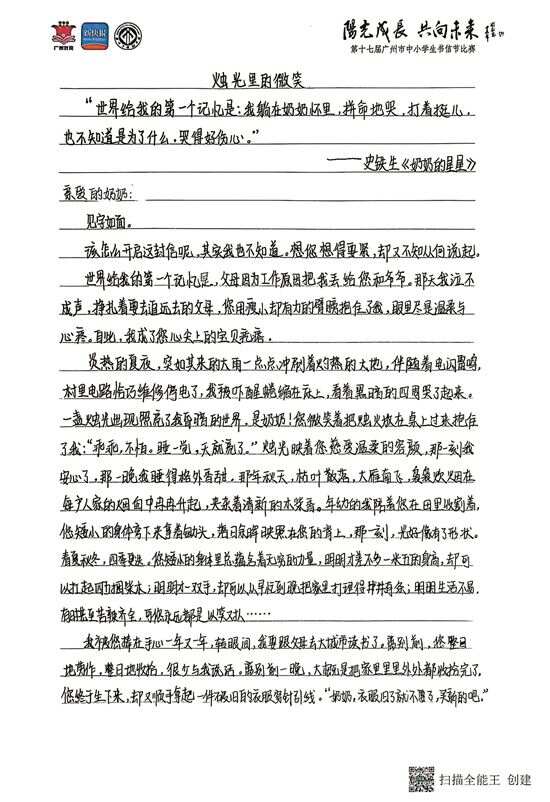 广州教育
新快报
陽光成長 共向未来
第十七届广州市中小学生书信节比赛
烛光里的微笑
“世界给我的第一个记忆是：我躺在奶奶怀里，拼命地哭，打着挺儿，
也不知道是为了什么，哭得好伤心。”
——史铁生《奶奶的星星》
亲爱的奶奶：
见字如面。
该怎么开启这封信呢，其实我也不知道。想您想得要紧，却又不知从何说起。
世界给我的第一个记忆是，父母因为工作原因把我丢给您和爷爷。那天我泣不
成声，挣扎着要去追远去的父母，您用瘦小却有力的臂膀抱住了我，眼里尽是温柔与
心疼。自此，我成了您心尖上的宝贝疙瘩。
炎热的夏夜，突如其来的大雨一点点冲刷着灼热的大地，伴随着电闪雷鸣，
村里电路恰巧维修停电了，我被吓醒蜷缩在床上，看着黑暗的四周哭了起来。
一盏烛光出现照亮了我昏暗的世界，是奶奶！您微笑着把烛火放在桌上过来抱住
了我：“乖乖，不怕。睡一觉，天就亮了。”烛光映着您慈爱温柔的容颜，那一刻我
安心了，那一晚我睡得格外香甜。那年秋天，枯叶散落，大雁南飞，袅袅炊烟在
每户人家的烟囱中冉冉升起，夹杂着清新的木柴香。年幼的我陪着您在田里收割着，
您矮小的身体弯下来拿着锄头，落日余晖映照在您的背上，那一刻，光好像有了形状。
春夏秋冬，四季更迭。您矮小的身体里总蕴含着无穷的力量，明明才差不多一米五的身高，却可
以扛起四五捆柴木；明明才一双手，却可以从早忙到晚把家里打理得井井有条；明明生活不易，
酸甜苦辣齐全，可您永远都是以笑应对……
我不离您静在手心一年又一年，转眼间，我要跟父母去大城市读书了。离别前，您整日
地劳作，整日地收拾，很少与我说话。离别前一晚，大都是把家里里里外外都收拾完了，
您终于坐下来，却又顺手拿起一件破旧的衣服穿针引线。“奶奶，衣服旧了就不要了，买新的吧。”
扫描全能王 创建